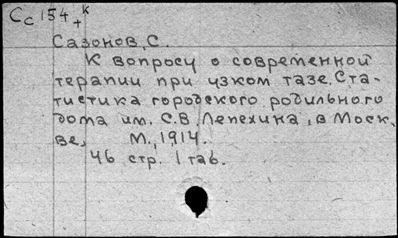 Сс 154 + к
Сазонов, С.
К вопросу о современной
терапии при узком тазе. Ста-
тистика городского родильного
дома им. С.В. Лепехина, в Моск-
ве, М., 1914.
46 стр. 1 таб.